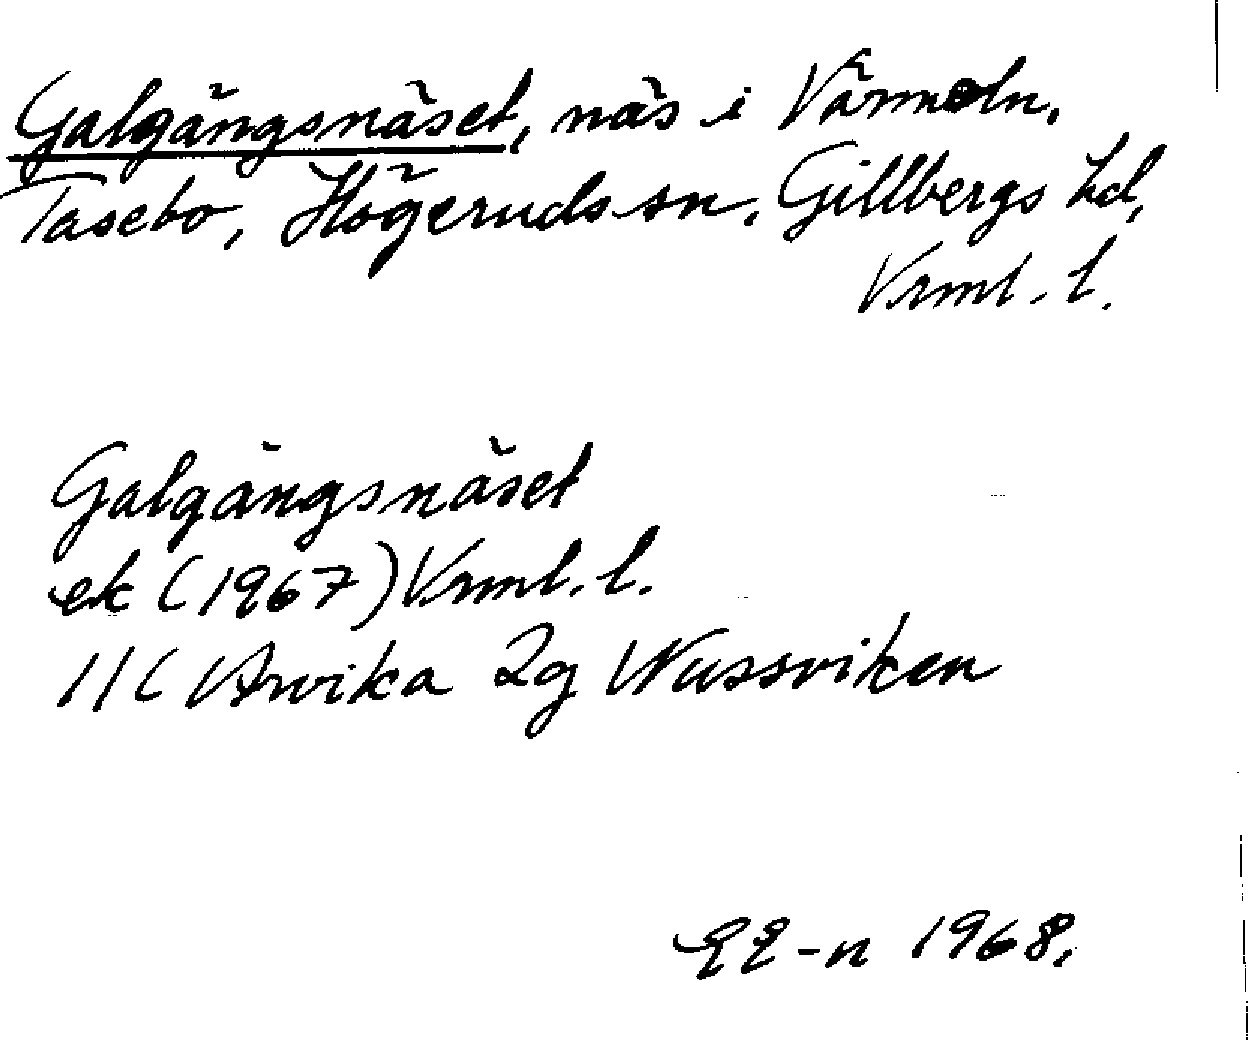 Galgängsnäset, näs i Värmeln,
Tasebo, Högeruds sn, Gillbergs hd,
Vrml. l.
Galgängsnäset
ek (1967) Vrml. l.
11C Arvika 2g Nussviken
EE-n 1968.